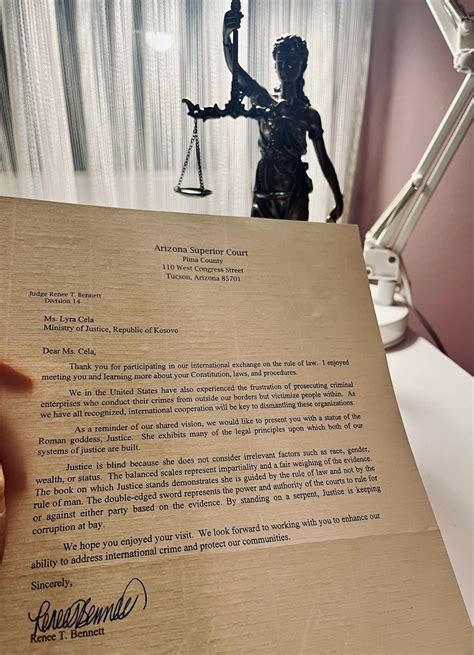 Arizona Superior Court
Pima County
110 West Congress Street
Tucson, Arizona 85701
Judge Renee T. Bennett
Division 14
Ms. Lyra Cela
Ministry of Justice, Republic of Kosovo
Dear Ms. Cela,
Thank you for participating in our international exchange on the rule of law. I enjoyed
meeting you and learning more about your Constitution, laws, and procedures.
We in the United States have also experienced the frustration of prosecuting criminal
enterprises who conduct their crimes from outside our borders but victimize people within. As
we have all recognized, international cooperation will be key to dismantling these organizations.
As a reminder of our shared vision, we would like to present you with a statue of the
Roman goddess, Justice. She exhibits many of the legal principles upon which both of our
systems of justice are built.
Justice is blind because she does not consider irrelevant factors such as race, gender,
wealth, or status. The balanced scales represent impartiality and a fair weighing of the evidence.
The book on which Justice stands demonstrates she is guided by the rule of law and not by the
rule of man. The double-edged sword represents the power and authority of the courts to rule for
or against either party based on the evidence. By standing on a serpent, Justice is keeping
corruption at bay.
We hope you enjoyed your visit. We look forward to working with you to enhance our
ability to address international crime and protect our communities.
Sincerely,
Renee Bennett
Renee T. Bennett